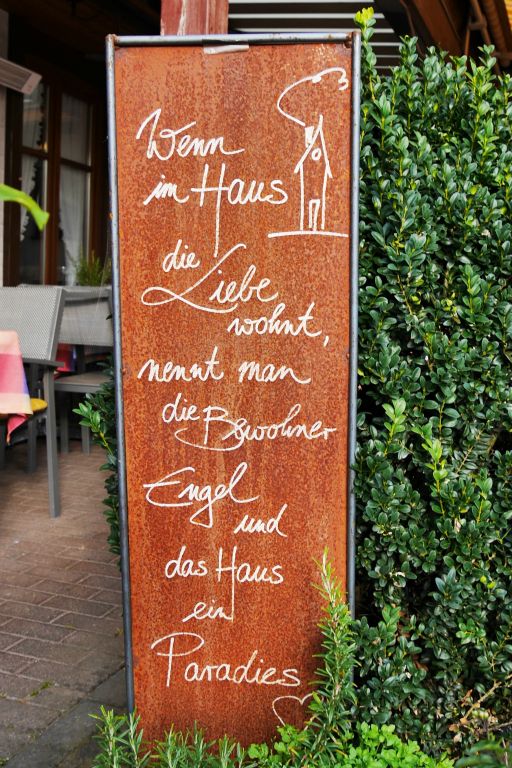 Wenn
im Haus
die
Liebe
wohnt,
nennt man
die Bewohner
Engel
und
das Haus
ein
Paradies